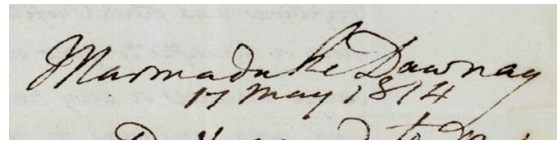 Marmaduke Dawnay
17 May 1814